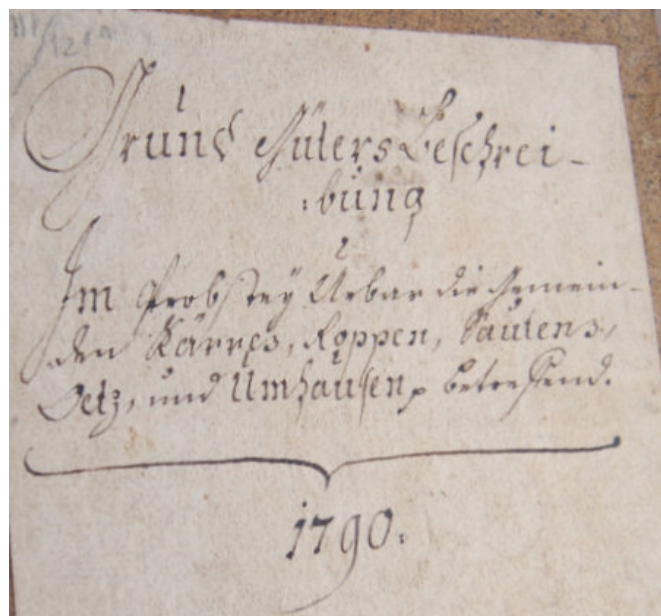 Grund Güters Beschrei-
:bung
Im Probstey Urbar die Gemein-
den Karres, Roppen, Sautens,
Oetz, und Umhausen betreffend.
1790.